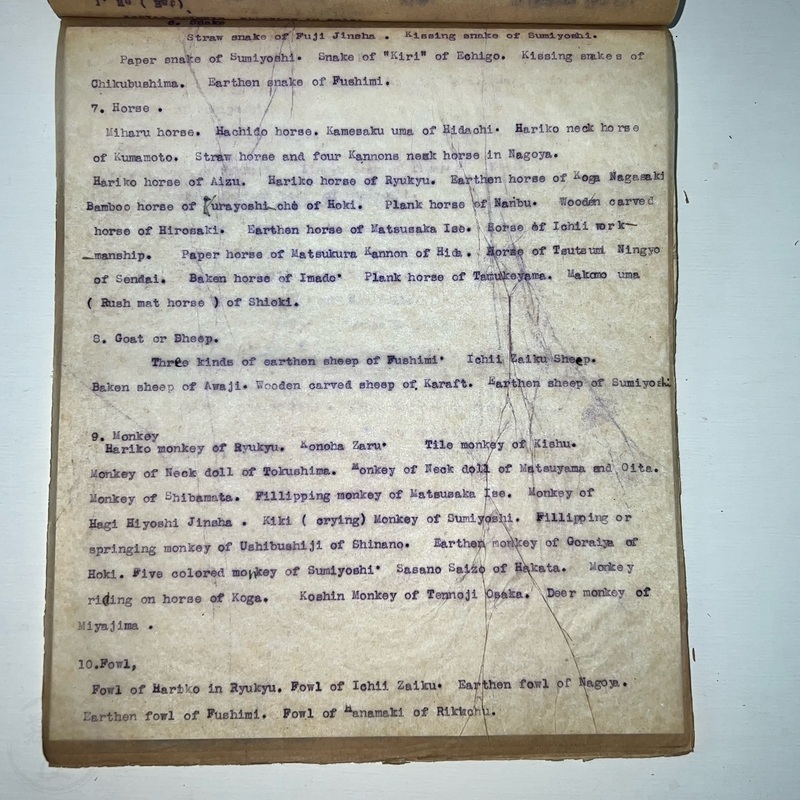 Straw snake of Fuji Jinsha . Kissing snake of Sumiyoshi.
Paper snake of Sumiyoshi. Snake of "Kiri" of Echigo. Kissing snakes of
Chikubushima. Earthen snake of Fushimi.
7. Horse .
Miharu horse. Hachido horse. Kamesaku uma of Hidachi. Hariko neck horse
of Kumamoto. Straw horse and four Kannons neak horse in Nagoya.
Hariko horse of Aizu. Hariko horse of Ryukyu. Earthen horse of Koga Nagasaki
Bamboo horse of Kurayoshi cho of Hoki. Plank horse of Nanbu. Wooden carved
horse of Hirosaki. Earthen horse of Matsusaka Ise. Horse of Ichii work-
manship. Paper horse of Matsukura Kannon of Hida. Horse of Tsutsumi Ningyo
of Sendai. Baken horse of Imado. Plank horse of Tamukeyama. Makomo uma
( Rush mat horse ) of Shioki.
8. Goat or Dheep.
Three kinds of earthen sheep of Fushimi. Ichii Zaiku Sheep.
Baken sheep of Awaji. Wooden carved sheep of Karaft. Earthen sheep of Sumiyoshi
9. Monkey
Hariko monkey of Ryukyu. Konoha Zaru. Tile monkey of Kishu.
Monkey of Neck doll of Tokushima. Monkey of Neck doll of Matsuyama and Oita.
Monkey of Shibamata. Fillipping monkey of Matsusaka Ise. Monkey of
Hagi Hiyoshi Jinsha . Kiki ( crying) Monkey of Sumiyoshi. Fillipping or
springing monkey of Ushibushiji of Shinano. Earthen monkey of Goraiya of
Hoki. Five colored monkey of Sumiyoshi. Sasano Saizo of Hakata. Monkey
riding on horse of Koga. Koshin Monkey of Tennoji Osaka. Deer monkey of
Miyajima .
10.Fowl,
Fowl of Hariko in Ryukyu. Fowl of Ichii Zaiku. Earthen fowl of Nagoya.
Earthen fowl of Fushimi. Fowl of Hanamaki of Rikuchu.